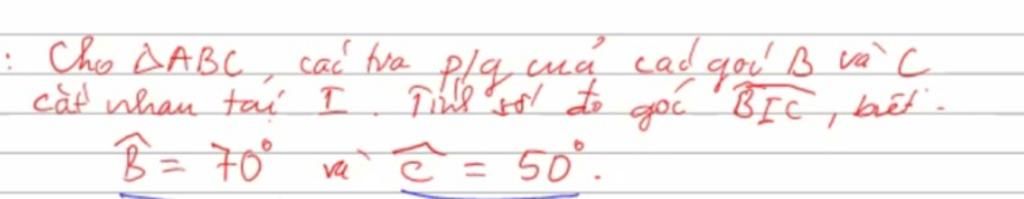 : Cho ΔABC, các tia p/g của các góc B và C
cắt nhau tại I. Tính số đo góc \widehat{BIC}, biết.
\widehat{B} = 70° và \widehat{C} = 50°.